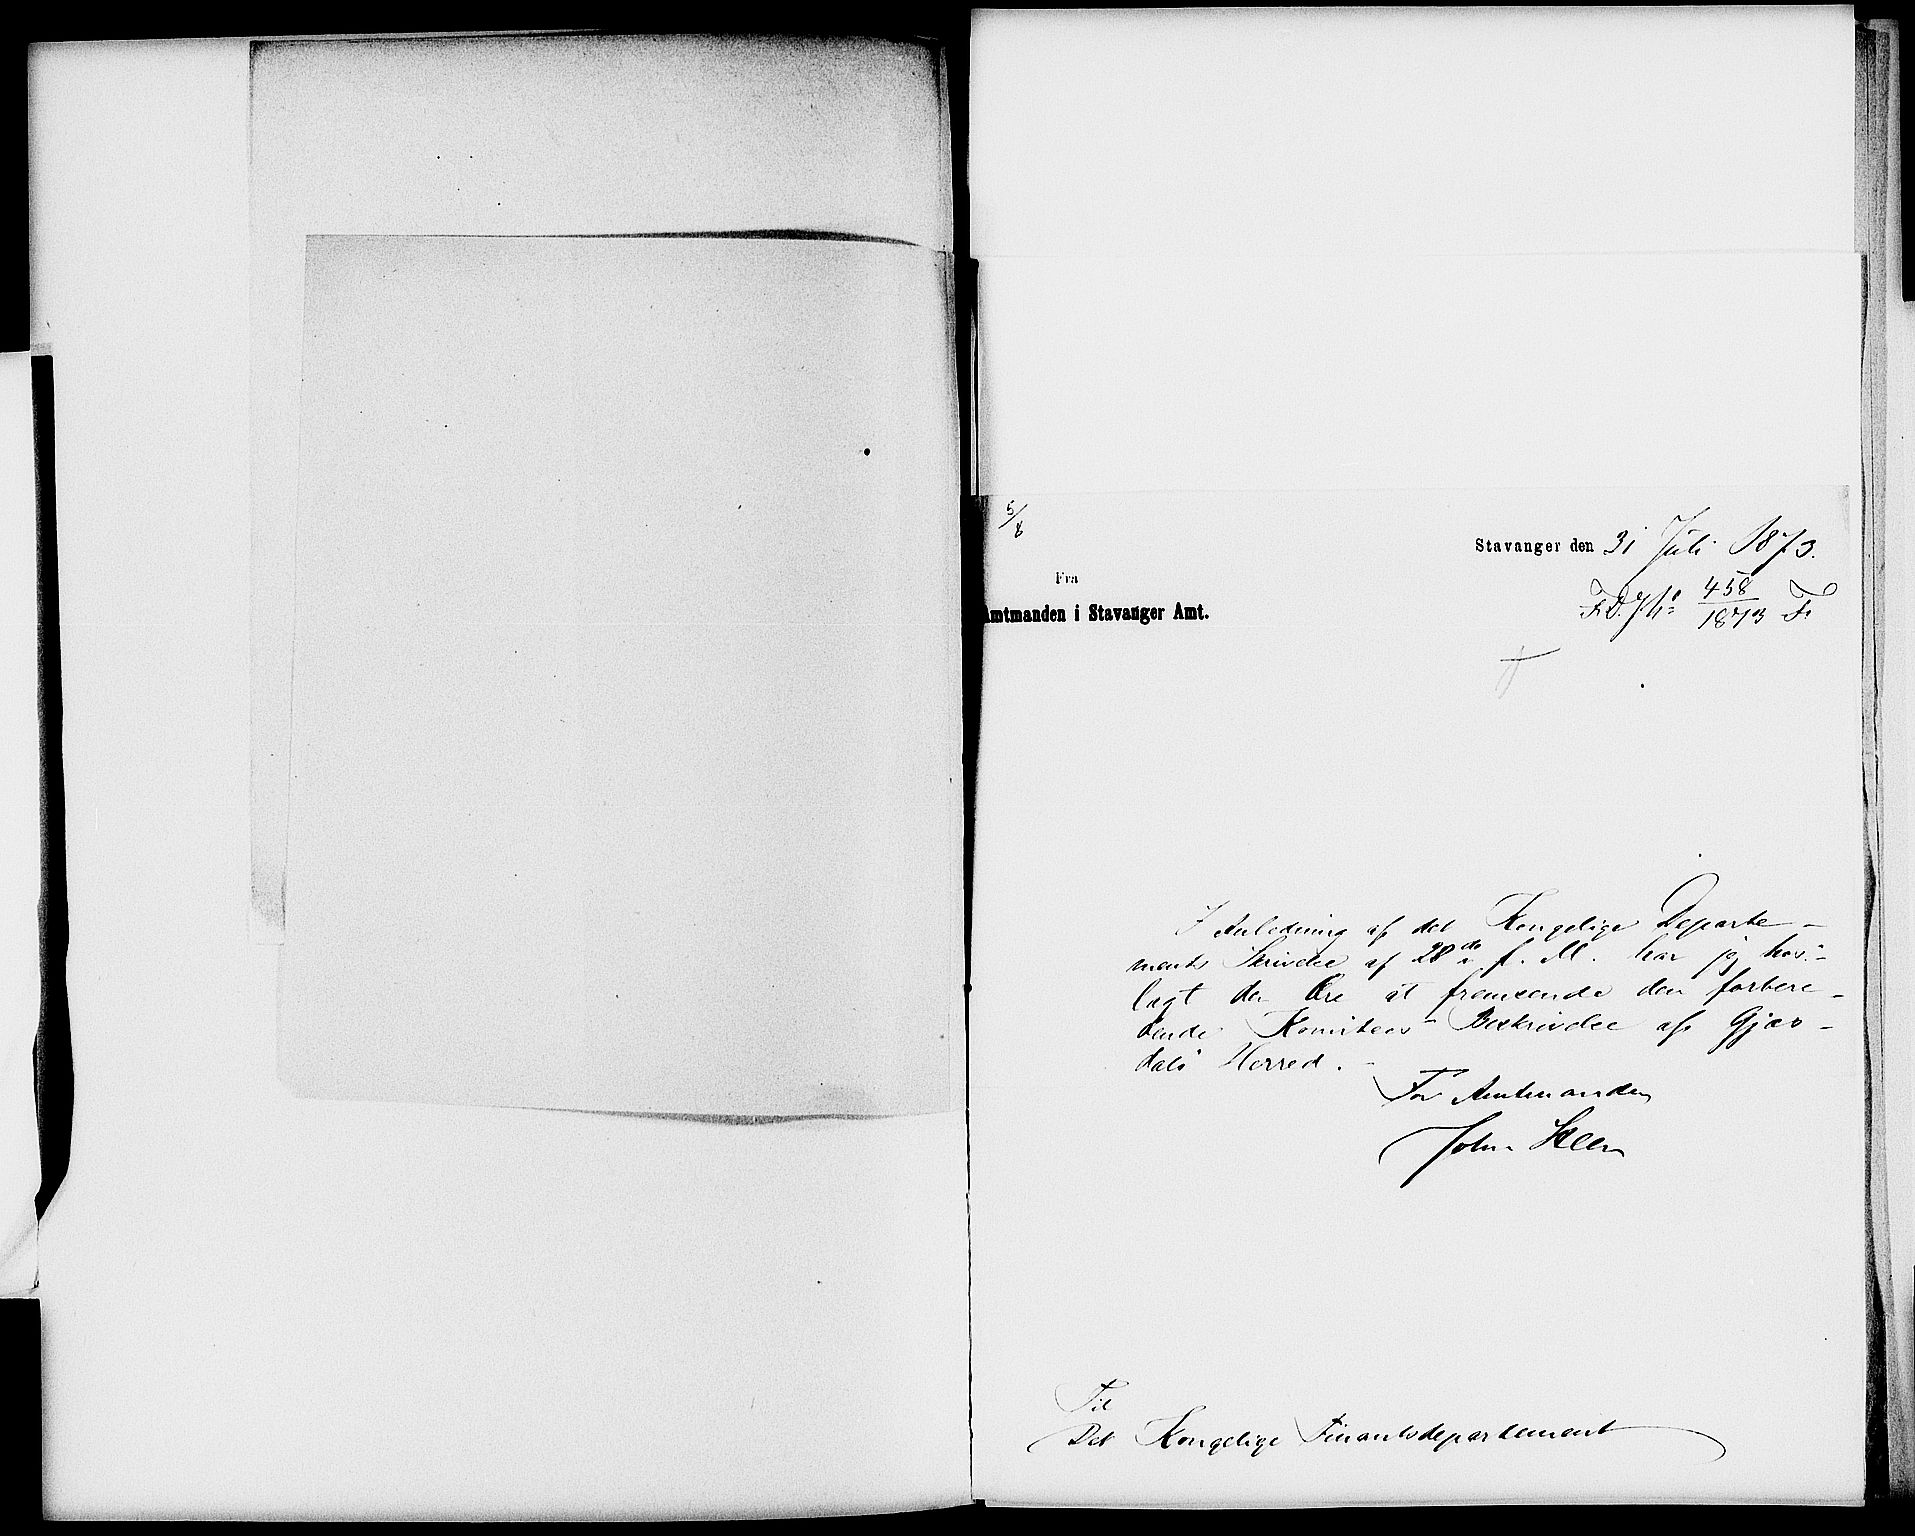 5/8
Stavanger den 31 Juli 1873.
Fra
Amtmanden i Stavanger Amt.
F.D.J.No 458/1873 F.
I Anledning af det Kongelige Departe-
ments Skrivelse af 28de f. M. har jeg hos-
lagt den Ære at fremsende den forbere-
dende Komitees Beskrivelse af Gjæs-
dals Herred.
For Amtmanden
John Steen
Til
Det Kongelige Finantsdepartement